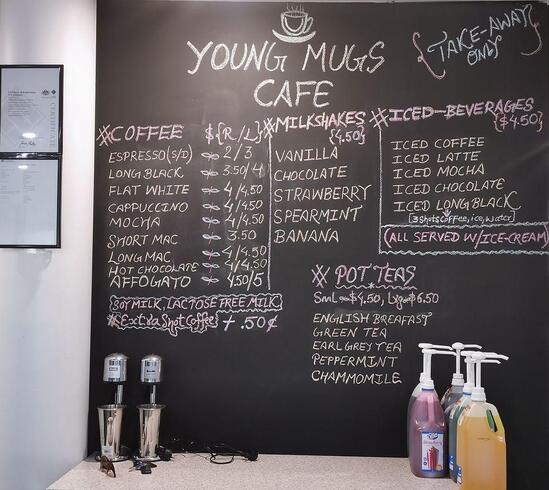 YOUNG MUGS
CAFE
{TAKE-AWAY
ONLY}
#COFFEE ${R/L}
ESPRESSO(S/D) 2/3
LONG BLACK 3.50/4
FLAT WHITE 4/4.50
CAPPUCCINO 4/4.50
MOCHA 4/4.50
SHORT MAC 3.50
LONG MAC 4/4.50
HOT CHOCOLATE 4/4.50
AFFOGATO 4.50/5
SOY MILK, LACTOSE FREE MILK
*Extra Shot Coffee + .50¢
#MILKSHAKES
{4.50}
VANILLA
CHOCOLATE
STRAWBERRY
SPEARMINT
BANANA
#ICED-BEVERAGES
{$4.50}
ICED COFFEE
ICED LATTE
ICED MOCHA
ICED CHOCOLATE
ICED LONG BLACK
[3 shots coffee, ice, water]
(ALL SERVED W/ICE-CREAM)
# POT TEAS
Sml $4.50, Lg $6.50
ENGLISH BREAFAST
GREEN TEA
EARL GREY TEA
PEPPERMINT
CHAMMOMILE
CERTIFICATE